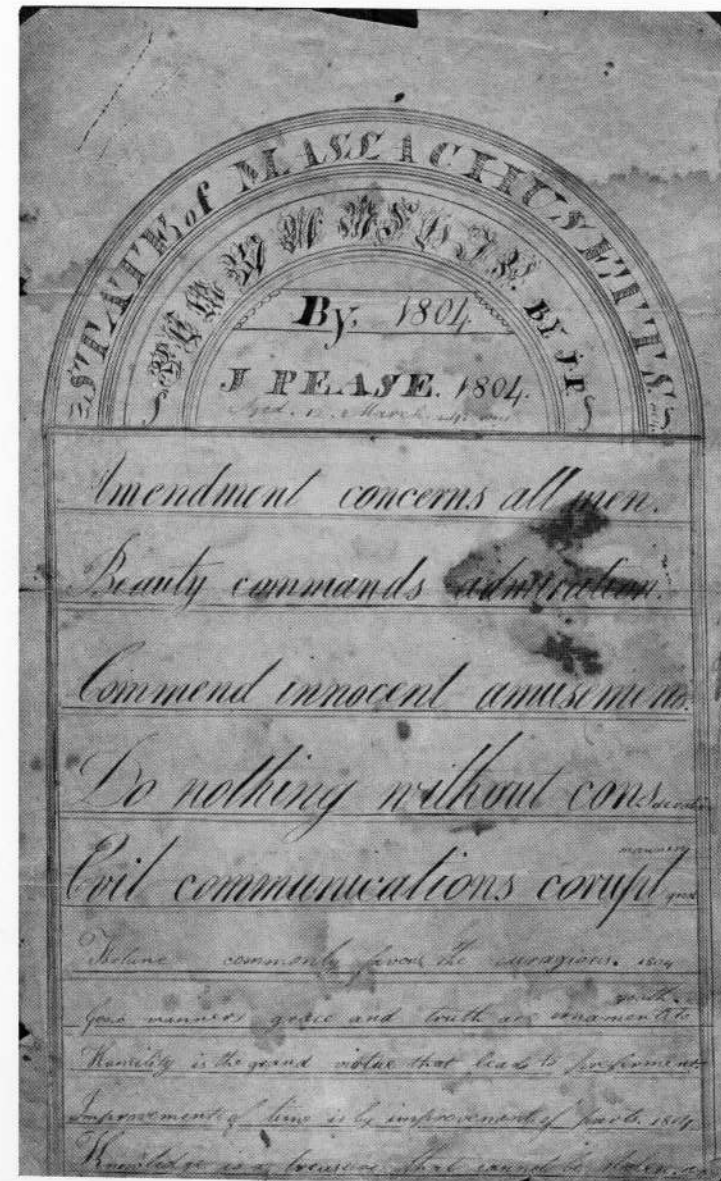 STATE of MASSACHUSETTS.
BY J.P.
By, 1804.
J PEASE. 1804.
Aged. 12. March
Amendment concerns all men.
Beauty commands admiration.
Commend innocent amusements.
Do nothing without consideration
manners
Evil communications corupt good
Fortune commonly favors the couragious. 1804
youth.
Good manners grace and truth are ornaments to
Humility is the grand virtue that leads to preferment.
Improvement of time is by improvement of parts. 1804
Knowledge is a treasure that cannot be stolen.